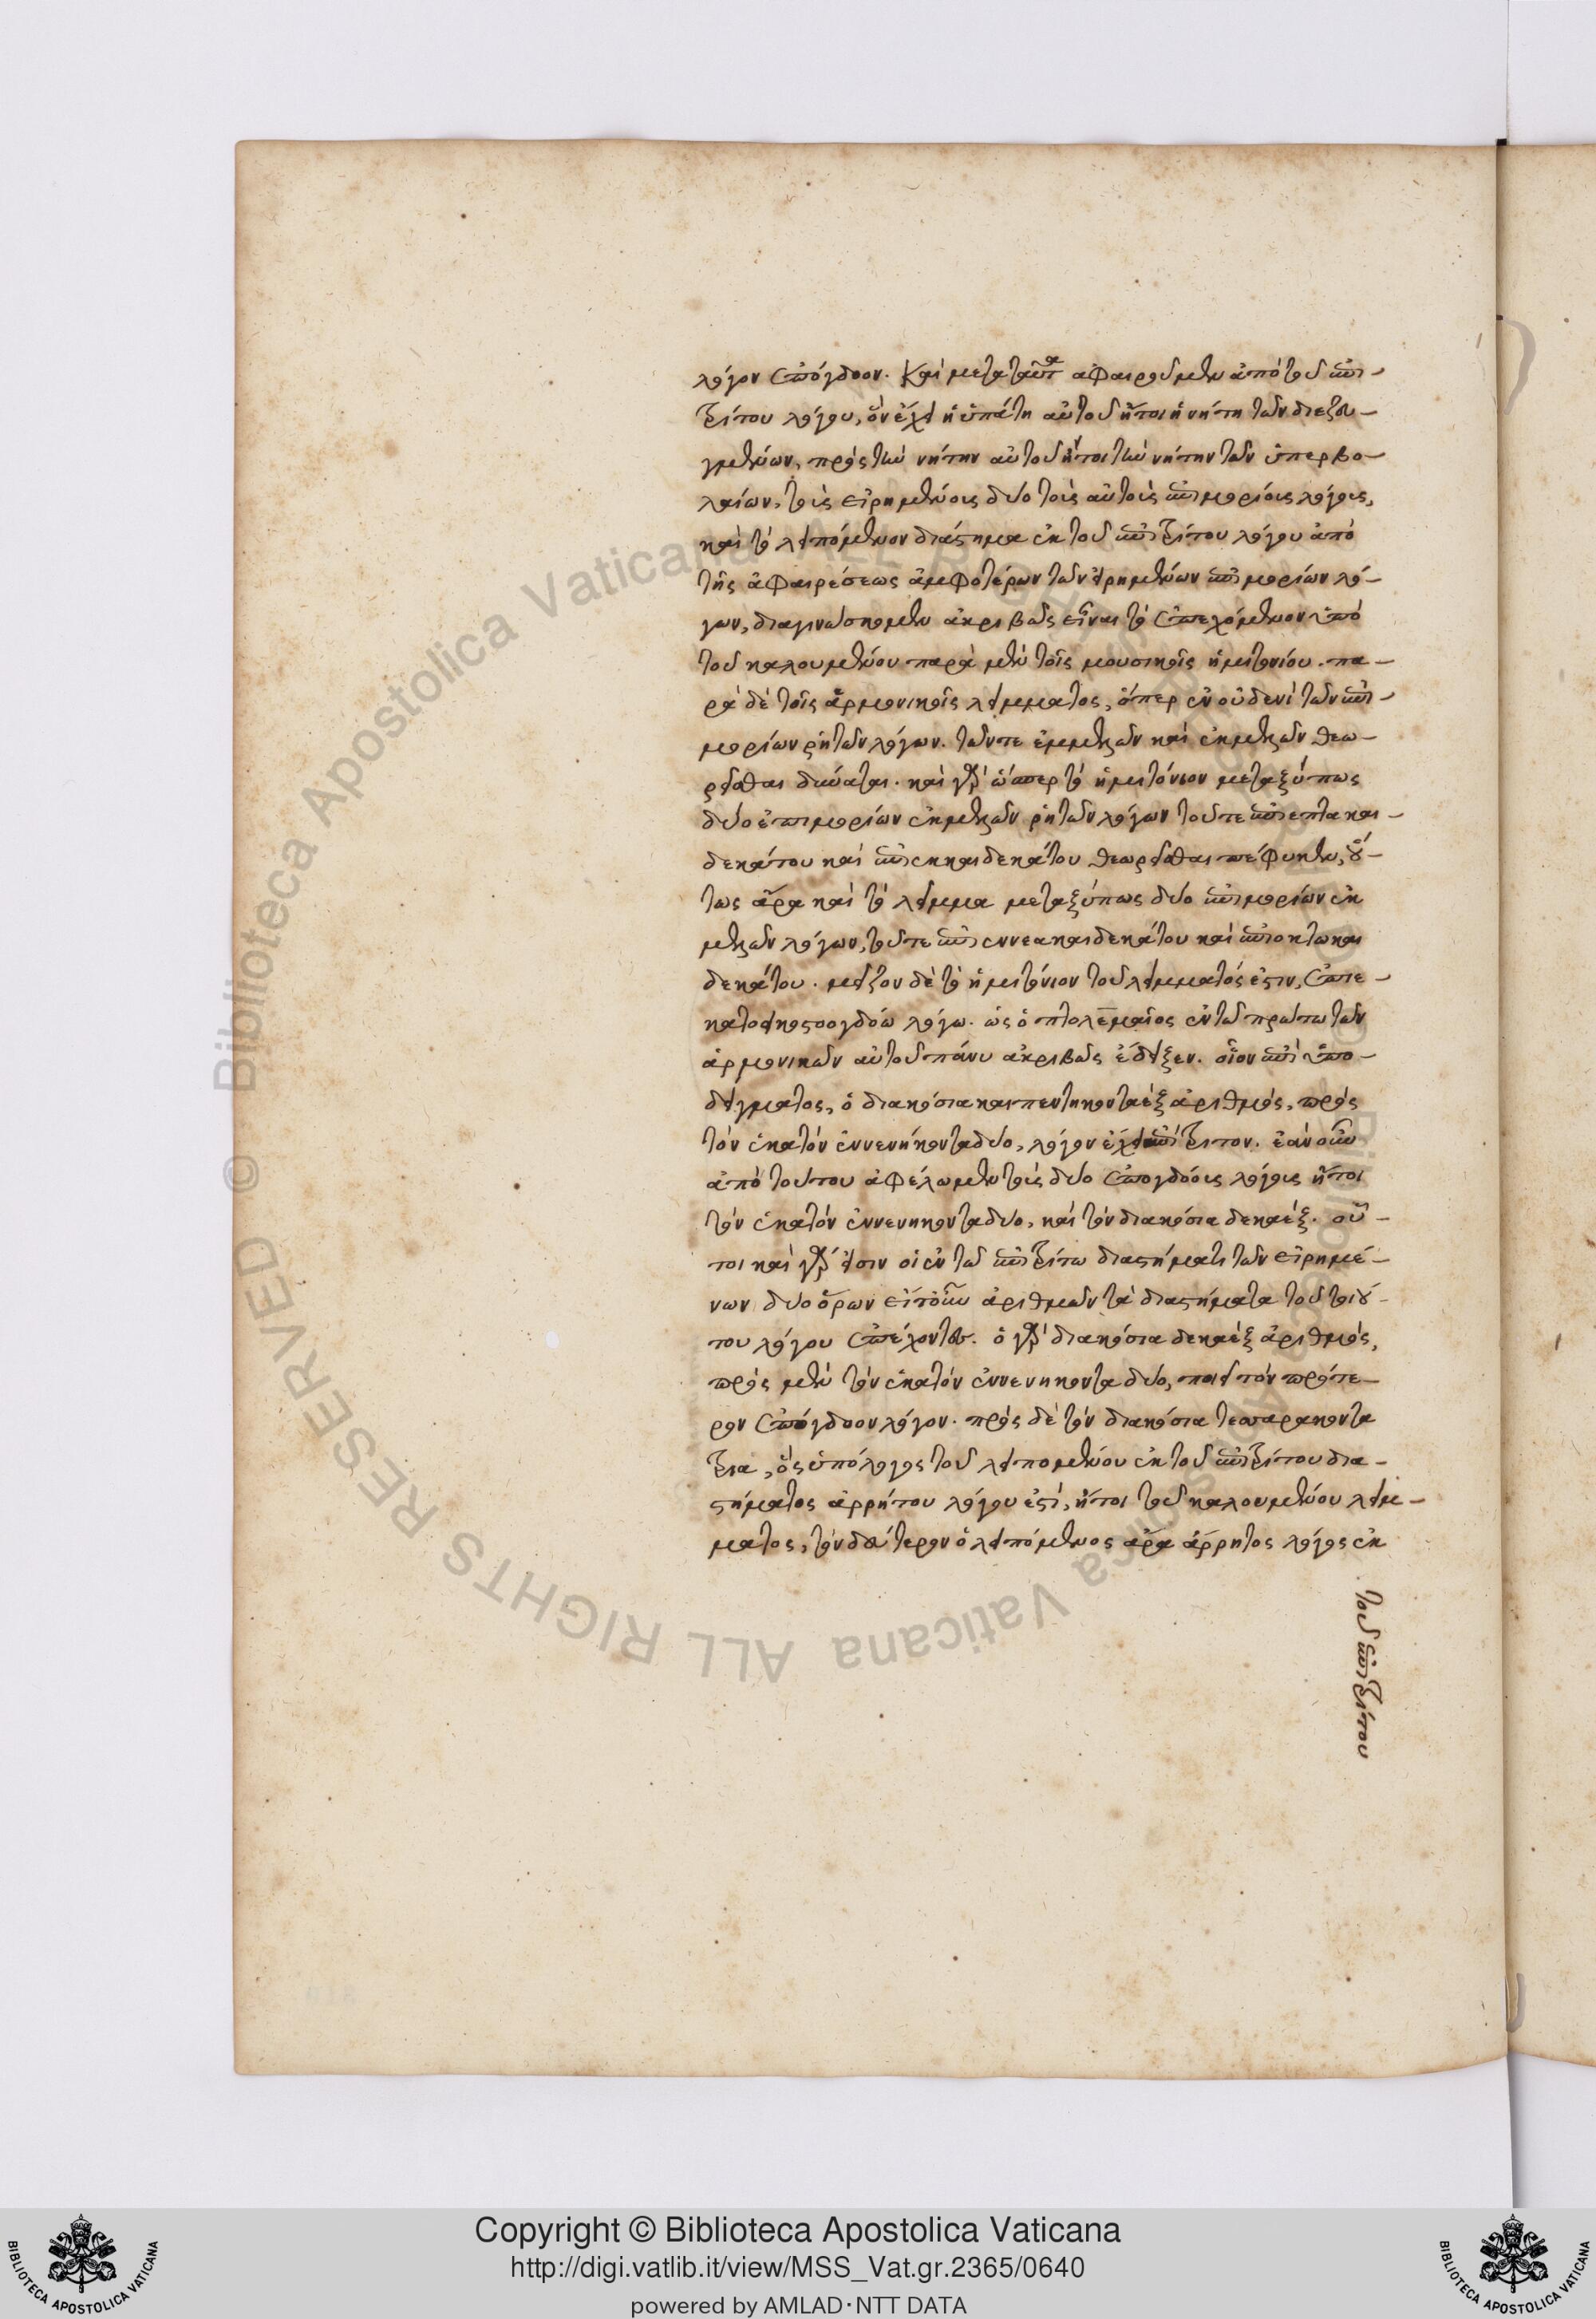 λόγον ἐπόγδοον. Καὶ μετὰ ταῦτα ἀφαιροῦμεν ἀπὸ τοῦ ἐπι-
τρίτου λόγου, ὃν ἔχει ἡ ὑπάτη αὐτοῦ ἤτοι ἡ νήτη τῶν διεζευ-
γμένων, πρὸς τὴν νήτην αὐτοῦ ἤτοι τὴν νήτην τῶν ὑπερβο-
λαίων, τοὺς εἰρημένους δύο τοὺς αὐτοὺς ἐπιμορίους λόγους,
καὶ τὸ λειπόμενον διάστημα ἐκ τοῦ ἐπιτρίτου λόγου ἀπὸ
τῆς ἀφαιρέσεως ἀμφοτέρων τῶν εἰρημένων ἐπιμορίων λό-
γων, διαγινώσκομεν ἀκριβῶς εἶναι τὸ ἐπεχόμενον ὑπὸ
τοῦ καλουμένου παρὰ μὲν τοῖς μουσικοῖς ἡμιτονίου. πα-
ρὰ δὲ τοῖς ἁρμονικοῖς λείμματος, ὅπερ ἐν οὐδενὶ τῶν ἐπι-
μορίων ῥητῶν λόγων. τῶντε ἐμμελῶν καὶ ἐκμελῶν θεω-
ρεῖσθαι δύναται. καὶ γὰρ ὥσπερ τὸ ἡμιτόνιον μεταξύ πως
δύο ἐπιμορίων ἐκμελῶν ῥητῶν λόγων τοῦτε ἐπιεπτακαι-
δεκάτου καὶ ἐπιεκκαιδεκάτου θεωρεῖσθαι πέφυκεν, οὕ-
τως ἄρα καὶ τὸ λεῖμμα μεταξύ πως δύο ἐπιμορίων ἐκ
μελῶν λόγων, τοῦτε ἐπιεννεακαιδεκάτου καὶ ἐπιοκτωκαι
δεκάτου. μεῖζον δὲ τὸ ἡμιτόνιον τοῦ λείμματός ἐστιν, ἐπιε-
κατοεικοστοογδόω λόγω. ὡς ὁ πτολεμαῖος ἐν τῶ πρώτω τῶν
ἁρμονικῶν αὐτοῦ πάνυ ἀκριβῶς ἔδειξεν. οἷον ἐπὶ ὑπο-
δείγματος, ὁ διακόσια και πεντηκονταὲξ ἀριθμὸς, πρὸς
τὸν ἑκατὸν ἐννενήκονταδυο, λόγον ἔχει ἐπίτριτον. ἐὰν οὖν
ἀπὸ τούτου ἀφέλωμεν τοὺς δύο ἐπογδόους λόγους ἤτοι
τὸν ἑκατὸν ἐννενηκονταδυο, καὶ τὸν διακόσια δεκαὲξ. οὗ-
τοι καὶ γάρ εἰσιν οἱ ἐν τῶ ἐπιτρίτω διαστήματι τῶν εἰρημέ-
νων δυο ὅρων εἴτοῦν ἀριθμῶν τὰ διαστήματα τοῦ τοιού-
του λόγου ἐπέχοντες. ὁ γὰρ διακόσια δεκαὲξ ἀριθμὸς,
πρὸς μὲν τὸν ἑκατὸν ἐννενηκοντα δυο, ποιεῖ τὸν πρότε-
ρον ἐπόγδοον λόγον. πρὸς δὲ τὸν διακόσια τεσσαρακοντα
τρια, ὃς ὑπόλογος τοῦ λειπομένου ἐκ τοῦ ἐπιτρίτου δια-
στήματος ἀρρήτου λόγου ἐστὶ, ἤτοι τοῦ καλουμένου λείμ-
ματος, τὸν δεύτερον ὁ λειπόμενος ἄρα ἄρρητος λόγος ἐκ
τοῦ ἐπιτρίτου
Copyright © Biblioteca Apostolica Vaticana
http://digi.vatlib.it/view/MSS_Vat.gr.2365/0640
powered by AMLAD·NTT DATA
BIBLIOTECA APOSTOLICA VATICANA
BIBLIOTECA APOSTOLICA VATICANA
© Biblioteca Apostolica Vaticana ALL RIGHTS RESERVED